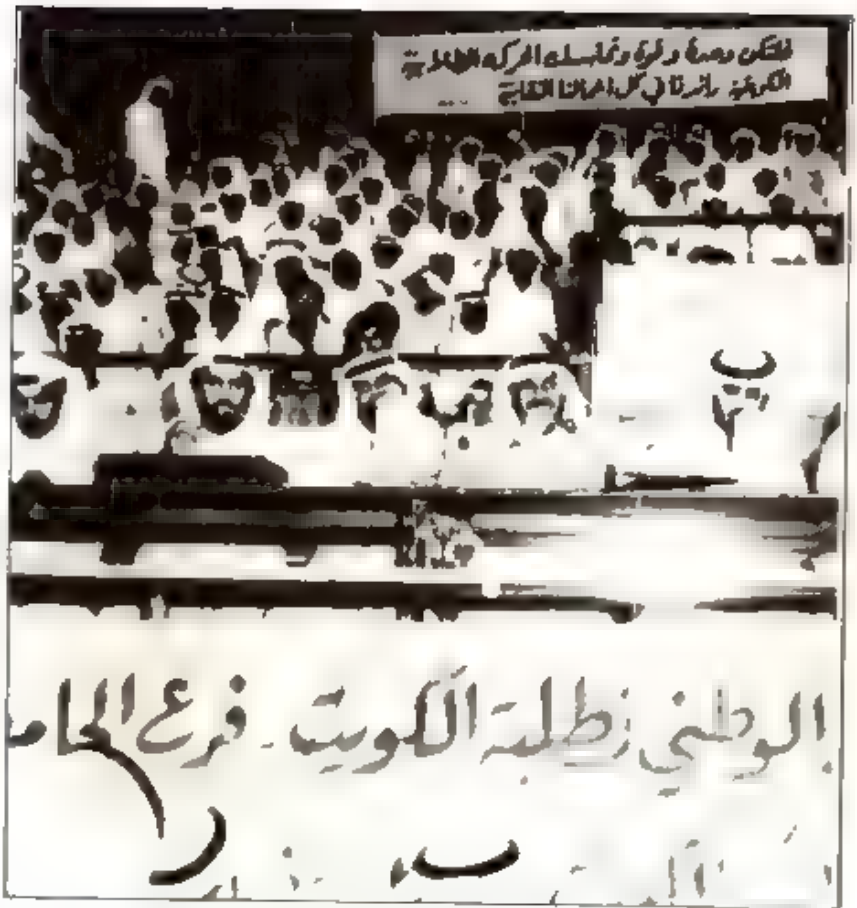 فلتكن وحدة وقوة وتماسك الحركة الطلابية
الكويتية رائدنا في كل أعمالنا النقابية
الوطني لطلبة الكويت - فرع الجام